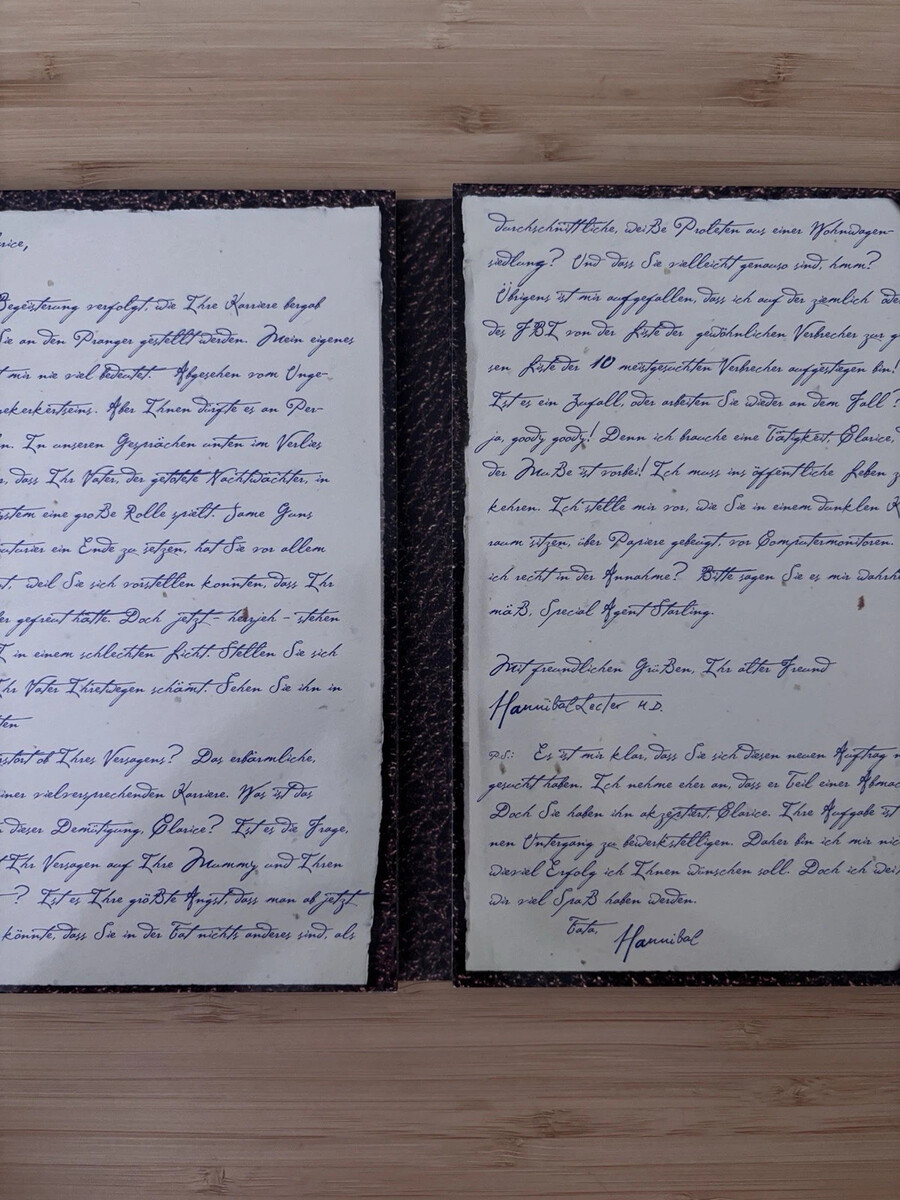 rice,
Begeisterung verfolgt, wie Ihre Karriere bergab
Sie an den Pranger gestellt werden. Mein eigenes
t mir nie viel bedeutet. Abgesehen vom Unge-
ekerkertseins. Aber Ihnen dürfte es an Per-
n. In unseren Gesprächen unten im Verlies
r, dass Ihr Vater, der getötete Nachtwächter, in
stem eine große Rolle spielt. Jame Gums
uturier ein Ende zu setzen, hat Sie vor allem
t, weil Sie sich vorstellen konnten, dass Ihr
er gefreut hätte. Doch jetzt - herrjeh - stehen
I in einem schlechten Licht. Stellen Sie sich
Ihr Vater Ihretwegen schämt. Sehen Sie ihn in
ten
rstört ob Ihres Versagens? Das erbärmliche,
iner vielversprechenden Karriere. Was ist das
n dieser Demütigung, Clarice? Ist es die Frage,
t Ihr Versagen auf Ihre Mummy und Ihren
? Ist es Ihre größte Angst, dass man ab jetzt
könnte, dass Sie in der Tat nichts anderes sind, als
durchschnittliche, weiße Proleten aus einer Wohnwagen-
siedlung? Und dass Sie vielleicht genauso sind, hmm?
Übrigens ist mir aufgefallen, dass ich auf der ziemlich öde
des FBI von der Liste der gewöhnlichen Verbrecher zur g
sen Liste der 10 meistgesuchten Verbrecher aufgestiegen bin!
Ist es ein Zufall, oder arbeiten Sie wieder an dem Fall?
ja, goody goody! Denn ich brauche eine Tätigkeit, Clarice,
der Muße ist vorbei! Ich muss ins öffentliche Leben z
kehren. Ich stelle mir vor, wie Sie in einem dunklen K
raum sitzen, über Papiere gebeugt, vor Computermonitoren.
ich recht in der Annahme? Bitte sagen Sie es mir wahrh
mäß, Special Agent Starling.
Mit freundlichen Grüßen, Ihr alter Freund
Hannibal Lecter M.D.
P.S.: Es ist mir klar, dass Sie sich diesen neuen Auftrag n
gesucht haben. Ich nehme eher an, dass er Teil einer Abmac
Doch Sie haben ihn akzeptiert, Clarice. Ihre Aufgabe ist
nen Untergang zu bewerkstelligen. Daher bin ich mir nic
wieviel Erfolg ich Ihnen wünschen soll. Doch ich wei
wir viel Spaß haben werden.
Tata,
Hannibal